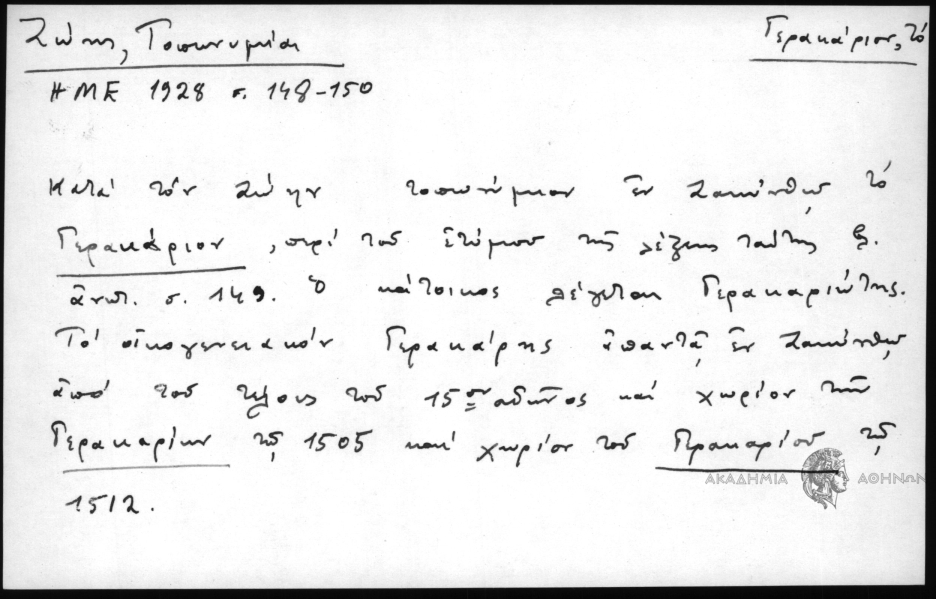 Ζώης, Τοπωνυμίαι
Γερακάριον, τό
ΗΜΕ 1928 σ. 148-150
Κατά τόν Ζώην τοπωνύμιον ἐν Ζακύνθῳ τό
Γερακάριον, περί τοῦ ἐτύμου τῆς λέξεως ταύτης βλ.
ἀνωτ. σ. 149. Ὁ κάτοικος λέγεται Γερακαριώτης.
Τό οἰκογενειακόν Γερακάρης ἀπαντᾷ ἐν Ζακύνθῳ
ἀπό τοῦ τέλους τοῦ 15ου αἰῶνος καί χωρίον τῶν
Γερακαρίων τῷ 1505 καί χωρίον τοῦ Γερακαρίου τῷ
1512.
ΑΚΑΔΗΜΙΑ ΑΘΗΝΩΝ